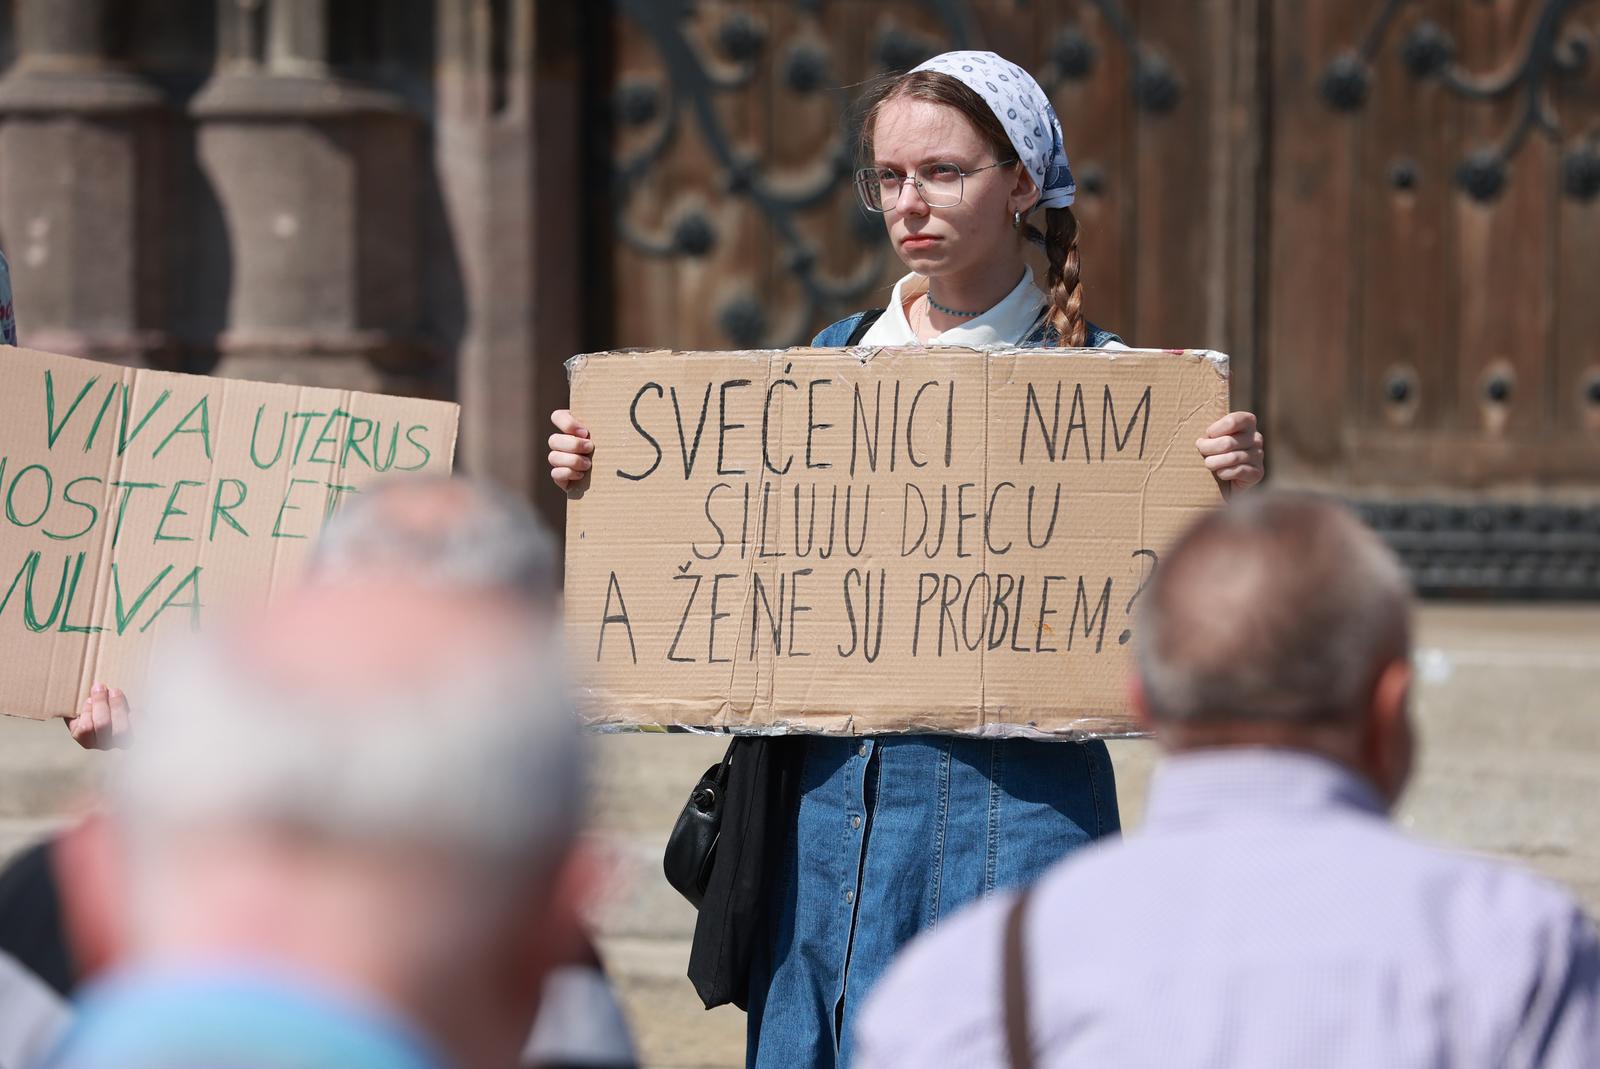 VIVA UTERUS
NOSTER ET
VULVA
SVEĆENICI NAM
SILUJU DJECU
A ŽENE SU PROBLEM?